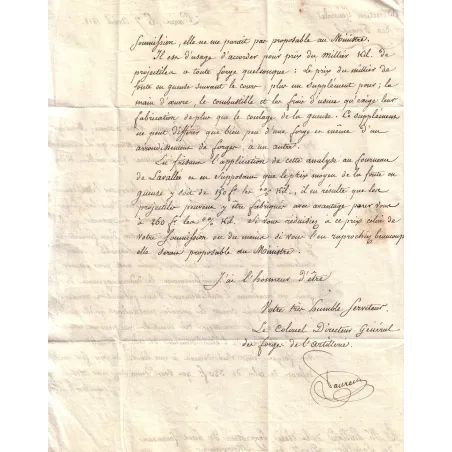 soumission, elle ne me parait pas proposable au Ministre.
Il est d'usage d'accorder pour prix du millier Kil. de
projectiles a toute forge quelconque : le prix du millier de
fonte en gueuse suivant le cours, plus un supplement pour, la
main d'œuvre, le combustible et les frais d'usine qu'exige leur
fabrication de plus que le coulage de la gueuse. Ce supplement
ne peut differer que bien peu d'une forge et même d'un
arrondissement de forges a un autre.
En faisant l'application de cette analyse au fourneau
de et en supposant que le prix moyen de la fonte en
gueuse y soit de 150 fr. les Kil., il en resulte que les
projectiles peuvent y être fabriqués avec avantage pour vous
a 260 fr. les Kil. Si vous reduisiez a ce prix celui de
votre soumission ou du moins si vous l'en raprochiez beaucoup
elle serait proposable au Ministre.
J'ai l'honneur d'être
Votre très humble Serviteur.
Le Colonel Directeur Général
des forges de l'artillerie.